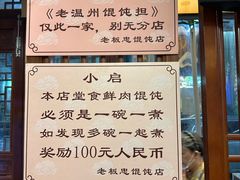 《老温州馄饨担》
仅此一家，别无分店
老板忠馄饨店
小启
本店堂食鲜肉馄饨
必须是一碗一煮
如发现多碗一起煮
奖励100元人民币
老板忠馄饨店